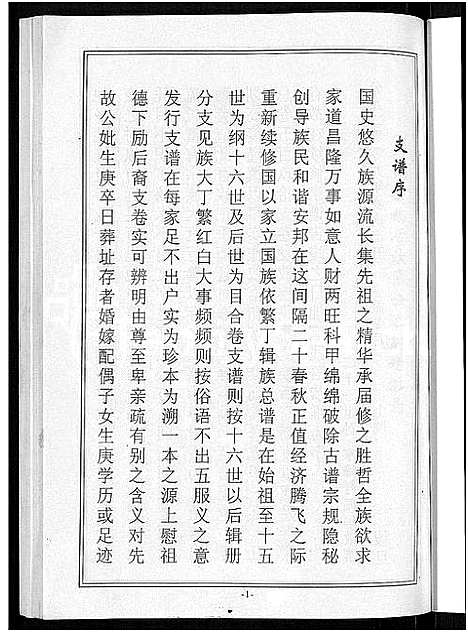 支谱序
国史悠久族源流长集先祖之精华承届修之胜哲全族欲求
家道昌隆万事如意人财两旺科甲绵绵破除古谱宗规隐秘
创导族民和谐安邦在这间隔二十春秋正值经济腾飞之际
重新续修国以家立国族依繁丁辑族总谱是在始祖至十五
世为纲十六世及后世为目合卷支谱则按十六世以后辑册
分支见族大丁繁红白大事频频则按俗语不出五服义之意
发行支谱在每家足不出户实为珍本为溯一本之源上慰祖
德下励后裔支卷实可辨明由尊至卑亲疏有别之含义对先
故公妣生庚卒日葬址存者婚嫁配偶子女生庚学历或足迹
-1-